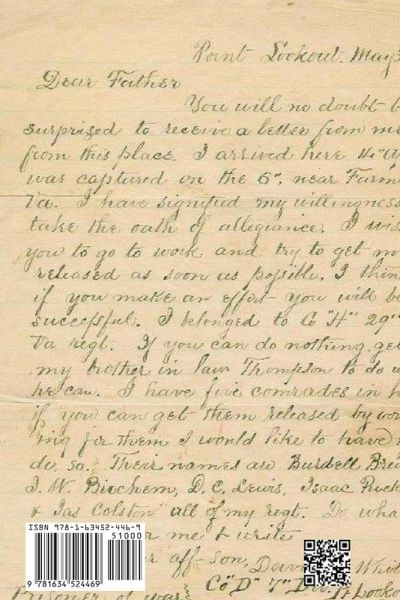 Point Lookout. May
Dear Father
You will no doubt b
surprized to receive a letter from m
from this place. I arrived here 14"
was captured on the 6". near Farm
Va. I have signified my willingness
take the oath of allegiance. I wis
you to go to work and try to get m
released as soon us possible. I thin
if you make an effort you will b
successful. I belonged to Co "H" 29"
Va regt. If you can do nothing, get
my brother in law Thompson to do w
he can. I have five comrades in h
if you can get them released by wor
ing for them I would like to have
do, so. Their names are Burdell Bre
J. W. Birchem, D. C. Lewis, Isaac
& Jas Colston all of my regt. Do wha
for me & write
aff son,
Co "D" 7" Div. Pt Looko
Prisoner of war
ISBN 978-1-63452-446-9
51000
9 781634 524469